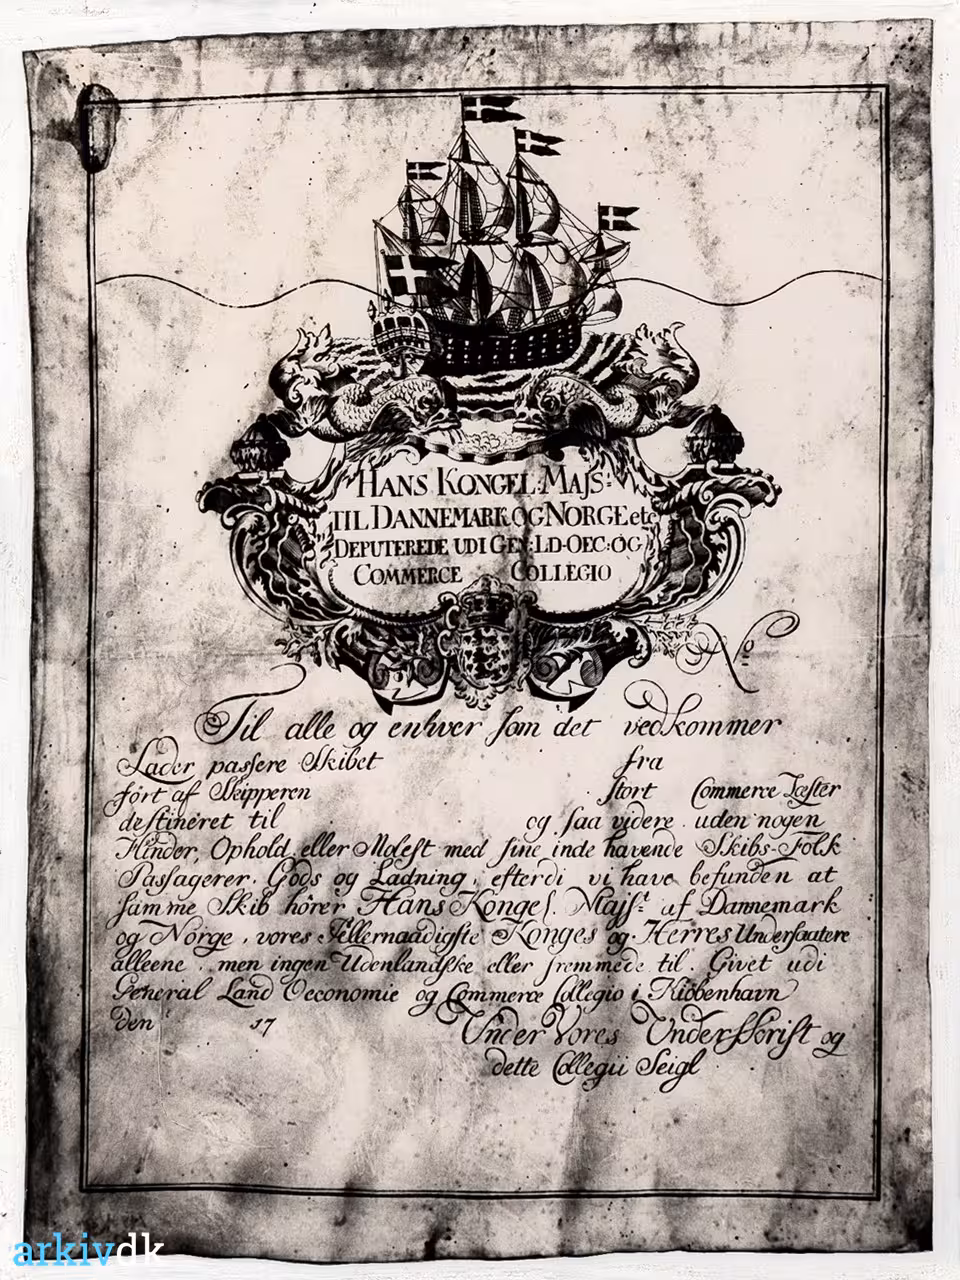 HANS KONGEL: MAJS:
TIL DANNEMARK OG NORGE etc
DEPUTEREDE UDI GEN: LD-OEC: OG
COMMERCE COLLEGIO
No
Til alle og enhver som det vedkommer
Lader passere Skibet fra
fört af Skipperen stort Commerce Læster
destineret til og saa videre uden nogen
Hinder, Ophold eller Molest med sine inde havende Skibs-Folk
Passagerer, Gods og Ladning, efterdi vi have befunden at
samme Skib hörer Hans Konges. Majst. af Dannemark
og Norge, vores Allernaadigste Konges og Herres Undersaatere
alleene, men ingen Udenlandske eller fremmede til. Givet udi
General Land Oeconomie og Commerce Collegio i Kiöbenhavn
den 17 Under Vores Underskrift og
dette Collegii Seigl
arkivdk